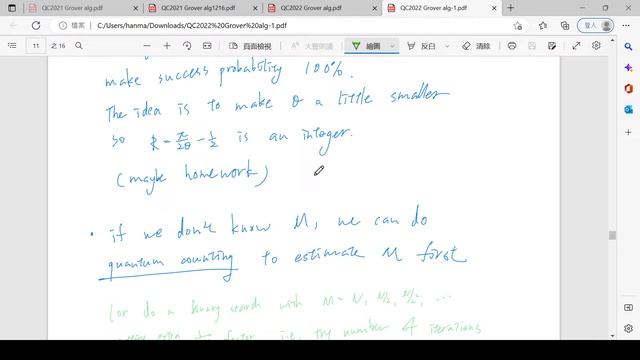 QC2021 Grover alg.pdf
QC2021 Grover alg1216.pdf
QC2022 Grover alg.pdf
QC2022 Grover alg-1.pdf
檔案 C:/Users/hanma/Downloads/QC2022%20Grover%20alg-1.pdf 登入
11 /16 頁面檢視 大聲朗讀 繪圖 反白 清除
make success probability 100%.
The idea is to make θ a little smaller
so k = π/2θ - 1/2 is an integer.
(maybe homework)
• if we don't know M, we can do
quantum counting to estimate M first
(or do a binary search with M = N, N/2, N/2², ...
extra factor i.e. try number 4 iterations